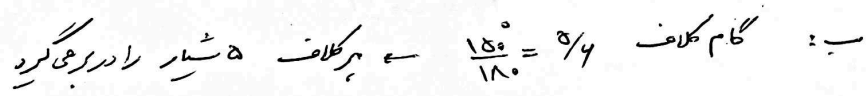 ب: گام کلاف ۵/۶ = ۱۵۰°/۱۸۰ ← هر کلاف ۵ شیار را در بر می گیرد